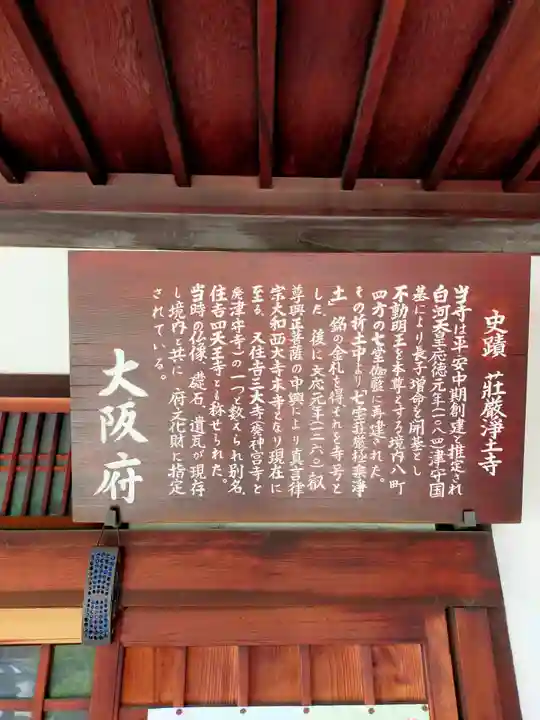 史蹟 荘厳浄土寺
当寺は平安中期創建と推定され
白河天皇応徳元年(一〇八四)津守国
基により長子増命を開基とし
不動明王を本尊とする境内八町
四方の七堂伽藍に再建された。
その折土中より「七宝荘厳極楽浄
土」銘の金札を得それを寺号と
した。後に文応元年(一二六〇)叡
尊興正菩薩の中興により真言律
宗大和西大寺末寺となり現在に
至る。又住吉三大寺(廃神宮寺と
廃津守寺)の一つと数えられ別名、
住吉四天王寺とも称せられた。
当時の仏像、礎石、遺瓦が現存
し境内と共に府文化財に指定
されている。
大阪府